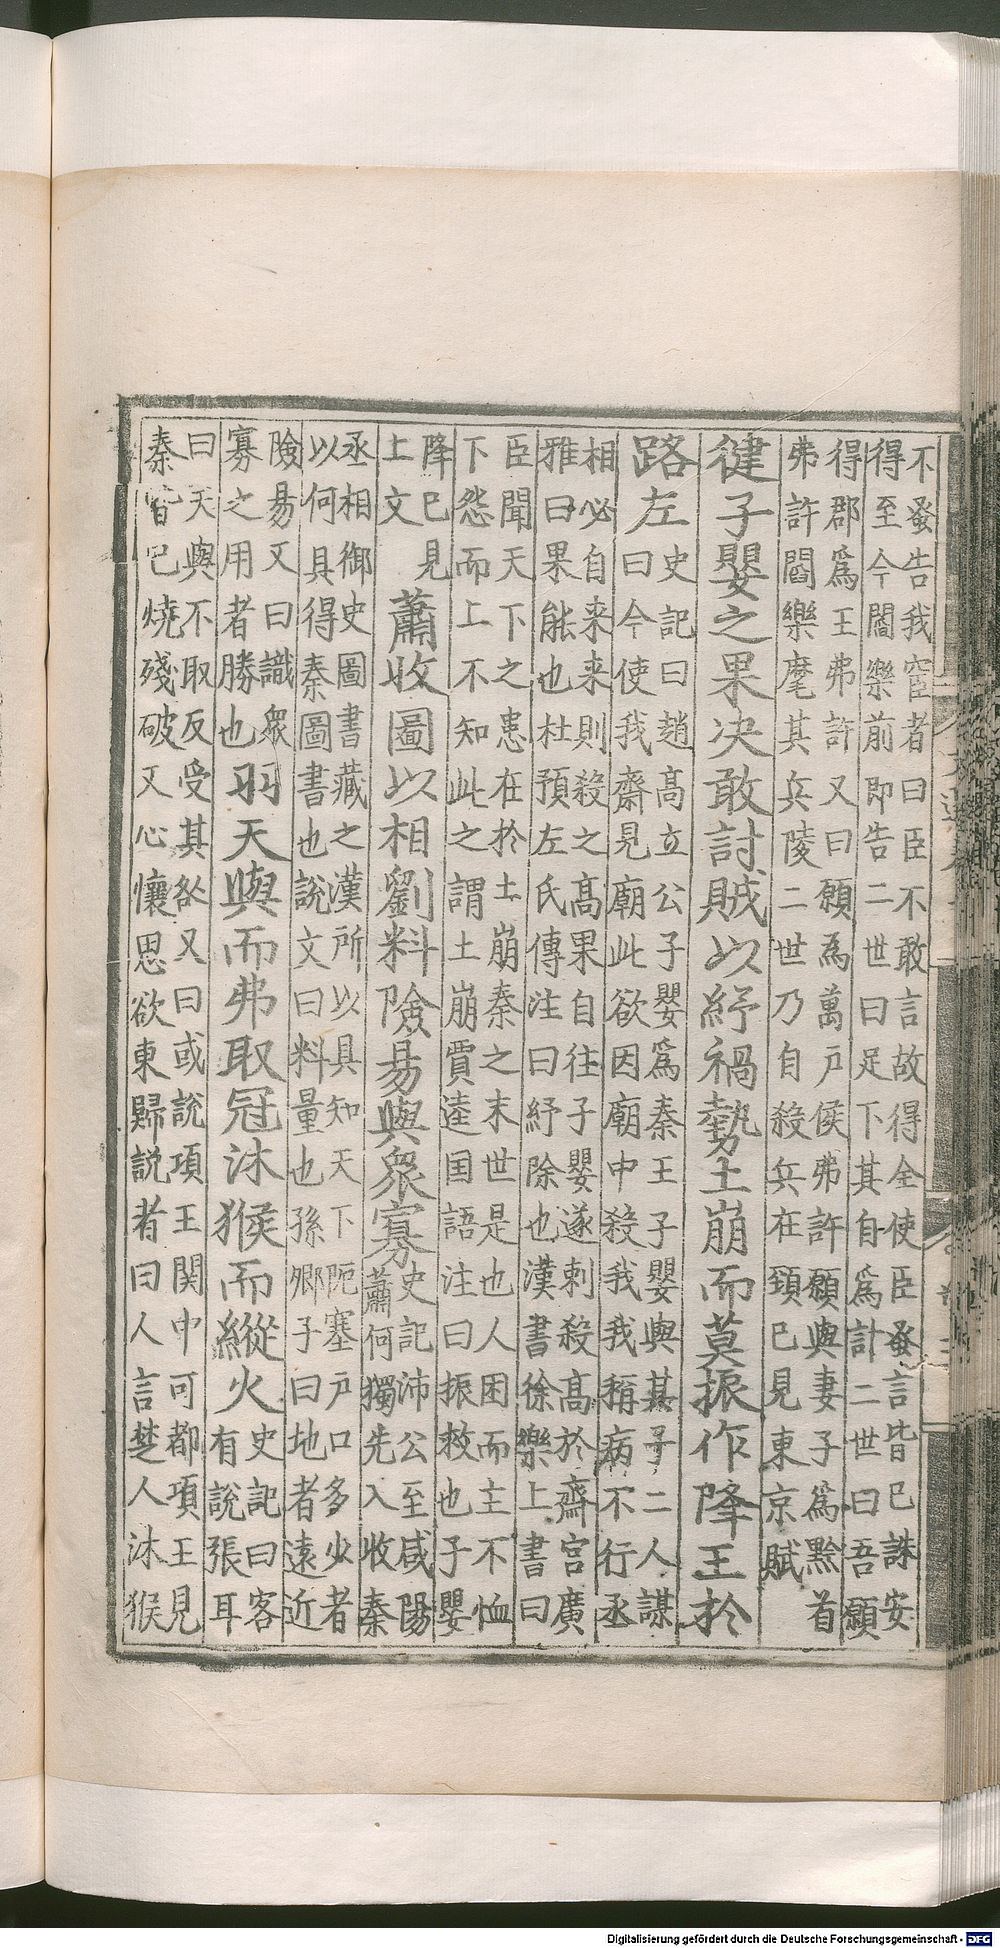 不蚤告我宦者曰臣不敢言故得全使臣蚤言皆已誅安
得至今閻樂前即告二世曰足下其自爲計二世曰吾願
得郡爲王弗許又曰願爲萬戶侯弗許願與妻子爲黔首
弗許閻樂麾其兵陵二世乃自殺兵在頚已見東京賦
健子嬰之果决敢討賊以紓禍勢土崩而莫振作降王於
路左
史記曰趙高立公子嬰爲秦王子嬰與其子二人謀
曰今使我齋見廟此欲因廟中殺我我稱病不行丞
相必自来来則殺之高果自往子嬰遂刺殺高於齋宫廣
雅曰果能也杜預左氏傳注曰紓除也漢書徐樂上書曰
臣聞天下之患在於土崩秦之末世是也人困而主不恤
下怨而上不知此之謂土崩賈逵国語注曰振救也子嬰
降已見
上文
蕭收圖以相劉料險易與衆寡
史記沛公至咸陽
蕭何獨先入收秦
丞相御史圖書藏之漢所以具知天下阨塞戶口多少者
以何具得秦圖書也說文曰料量也孫卿子曰地者遠近
險易又曰識衆
寡之用者勝也
羽天與而弗取冠沐猴而縱火
史記曰客
有說張耳
曰天與不取反受其咎又曰或說項王関中可都項王見
秦皆已燒殘破又心懷思欲東歸説者曰人言楚人沐猴
Digitalisierung gefördert durch die Deutsche Forschungsgemeinschaft - DFG